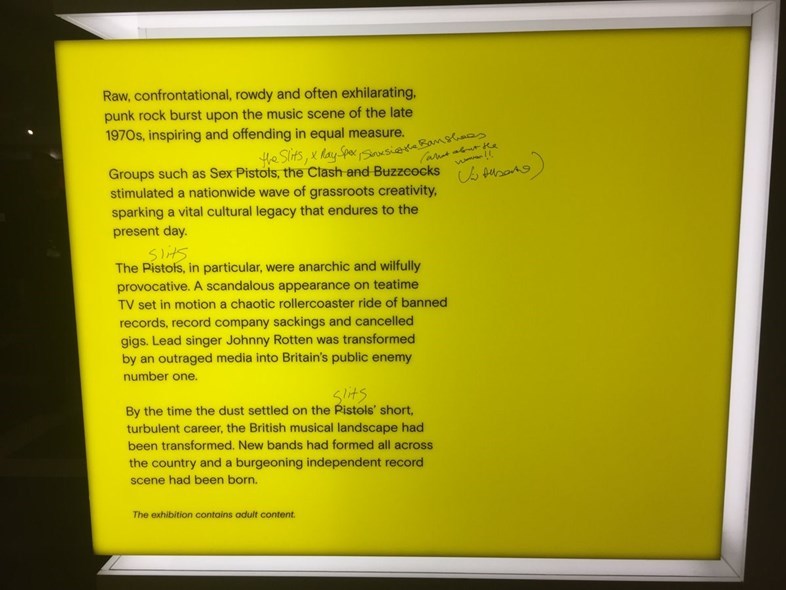 Raw, confrontational, rowdy and often exhilarating,
punk rock burst upon the music scene of the late
1970s, inspiring and offending in equal measure.
the Slits, X Ray Spex, Siouxsie & the Banshees
(what about the
women!!
Groups such as Sex Pistols, the Clash and Buzzcocks
(Viv Albertine)
stimulated a nationwide wave of grassroots creativity,
sparking a vital cultural legacy that endures to the
present day.
Slits
The Pistols, in particular, were anarchic and wilfully
provocative. A scandalous appearance on teatime
TV set in motion a chaotic rollercoaster ride of banned
records, record company sackings and cancelled
gigs. Lead singer Johnny Rotten was transformed
by an outraged media into Britain's public enemy
number one.
Slits
By the time the dust settled on the Pistols' short,
turbulent career, the British musical landscape had
been transformed. New bands had formed all across
the country and a burgeoning independent record
scene had been born.
The exhibition contains adult content.